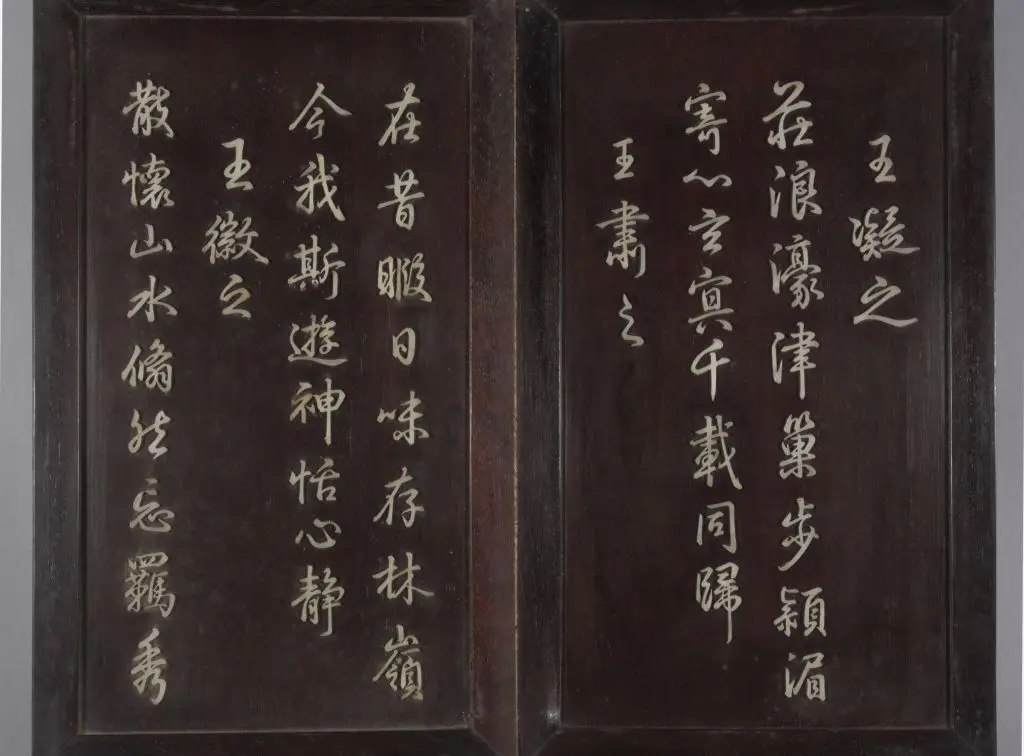 王凝之
莊浪濠津巢步潁湄
寄心玄冥千載同歸
王肅之
在昔暇日味存林嶺
今我斯遊神怡心靜
王徽之
散懷山水翛然忘羈秀